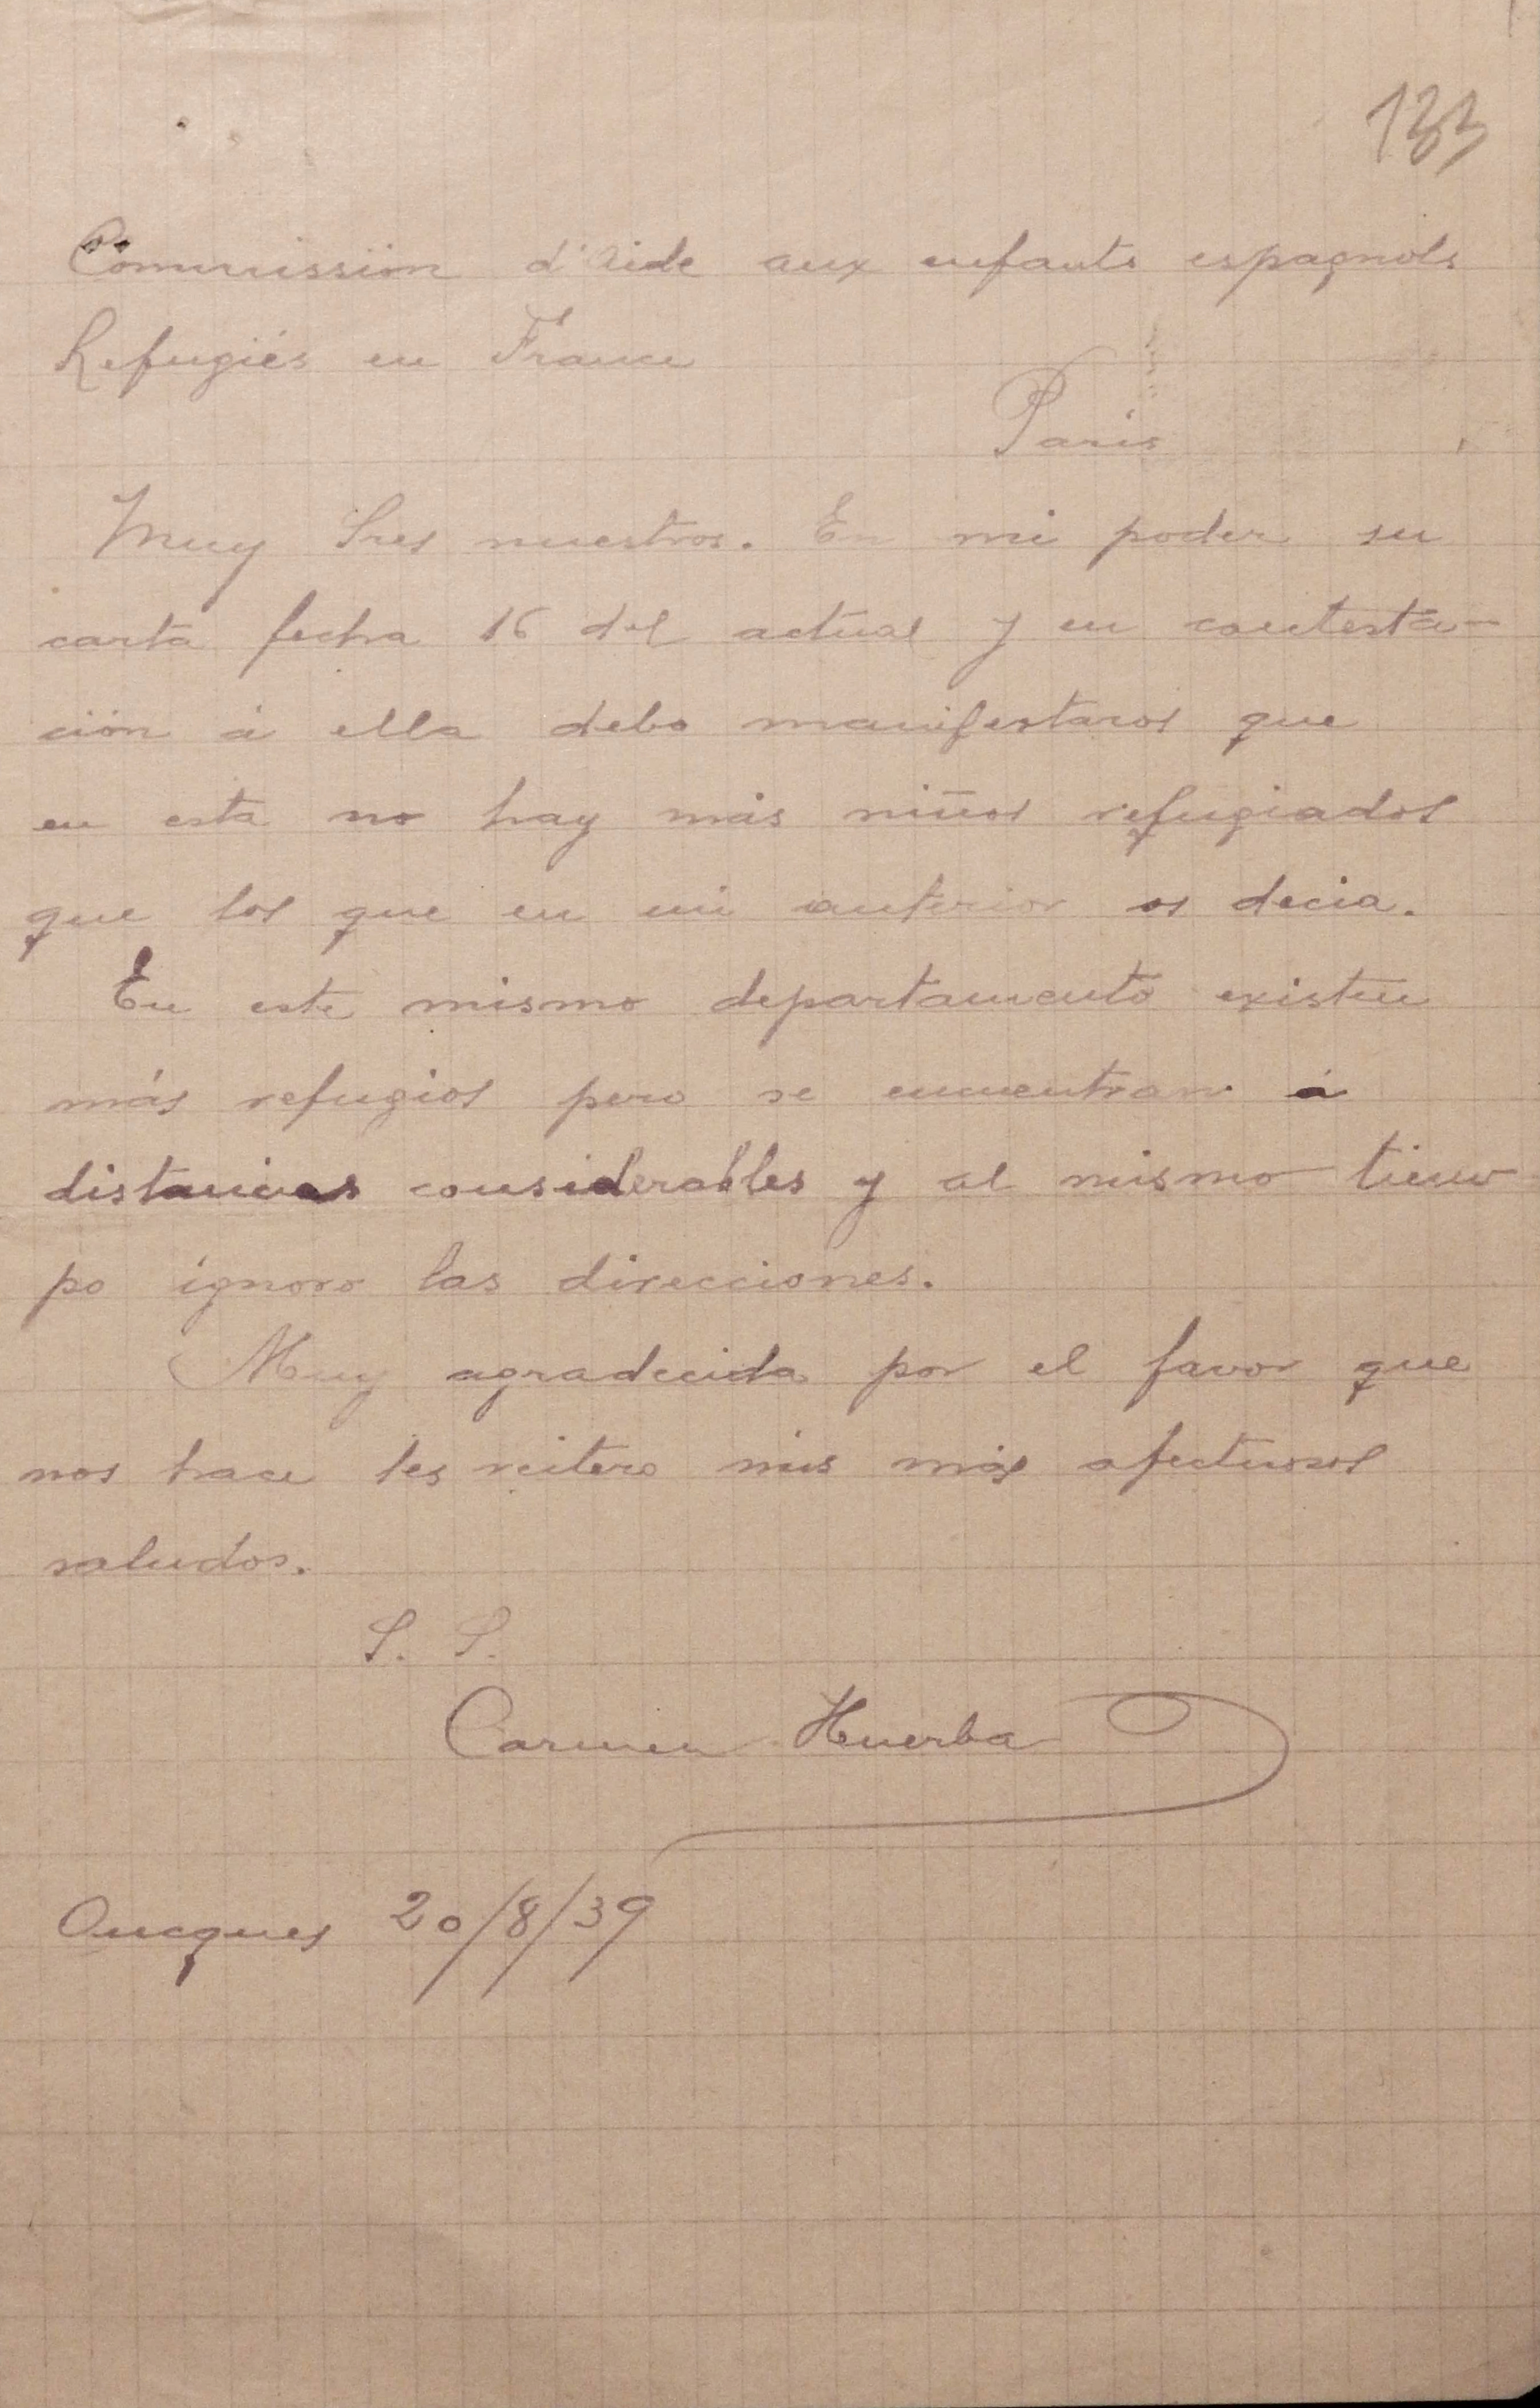 133
Commission d'Aide aux enfants espagnols
Refugiés en France
Paris
Muy Sres nuestros. En mi poder su
carta fecha 16 del actual y en contesta-
ción á ella debo manifestaros que
en esta no hay más niños refugiados
que los que en mi anterior os decia.
En este mismo departamento existen
más refugios pero se encuentran á
distancias considerables y al mismo tiem-
po ignoro las direcciones.
Muy agradecida por el favor que
nos hace les reitero mis más afectuosos
saludos.
S. S.
Carmen Huerba
Oucques 20/8/39